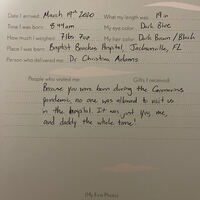 Date I arrived: March 19th 2020 What my length was: 19 in
Time I was born: 8:44am My eye color: Dark Blue
How much I weighed: 7lbs 7oz My hair color: Dark Brown/Black
Place I was born: Baptist Beaches Hospital, Jacksonville, FL
Person who delivered me: Dr Christina Adams
People who visited me: Gifts I received:
Because you were born during the Coronavirus
pandemic no one was allowed to visit us
in the hospital. It was just you, me,
and daddy the whole time!
(My First Photo)